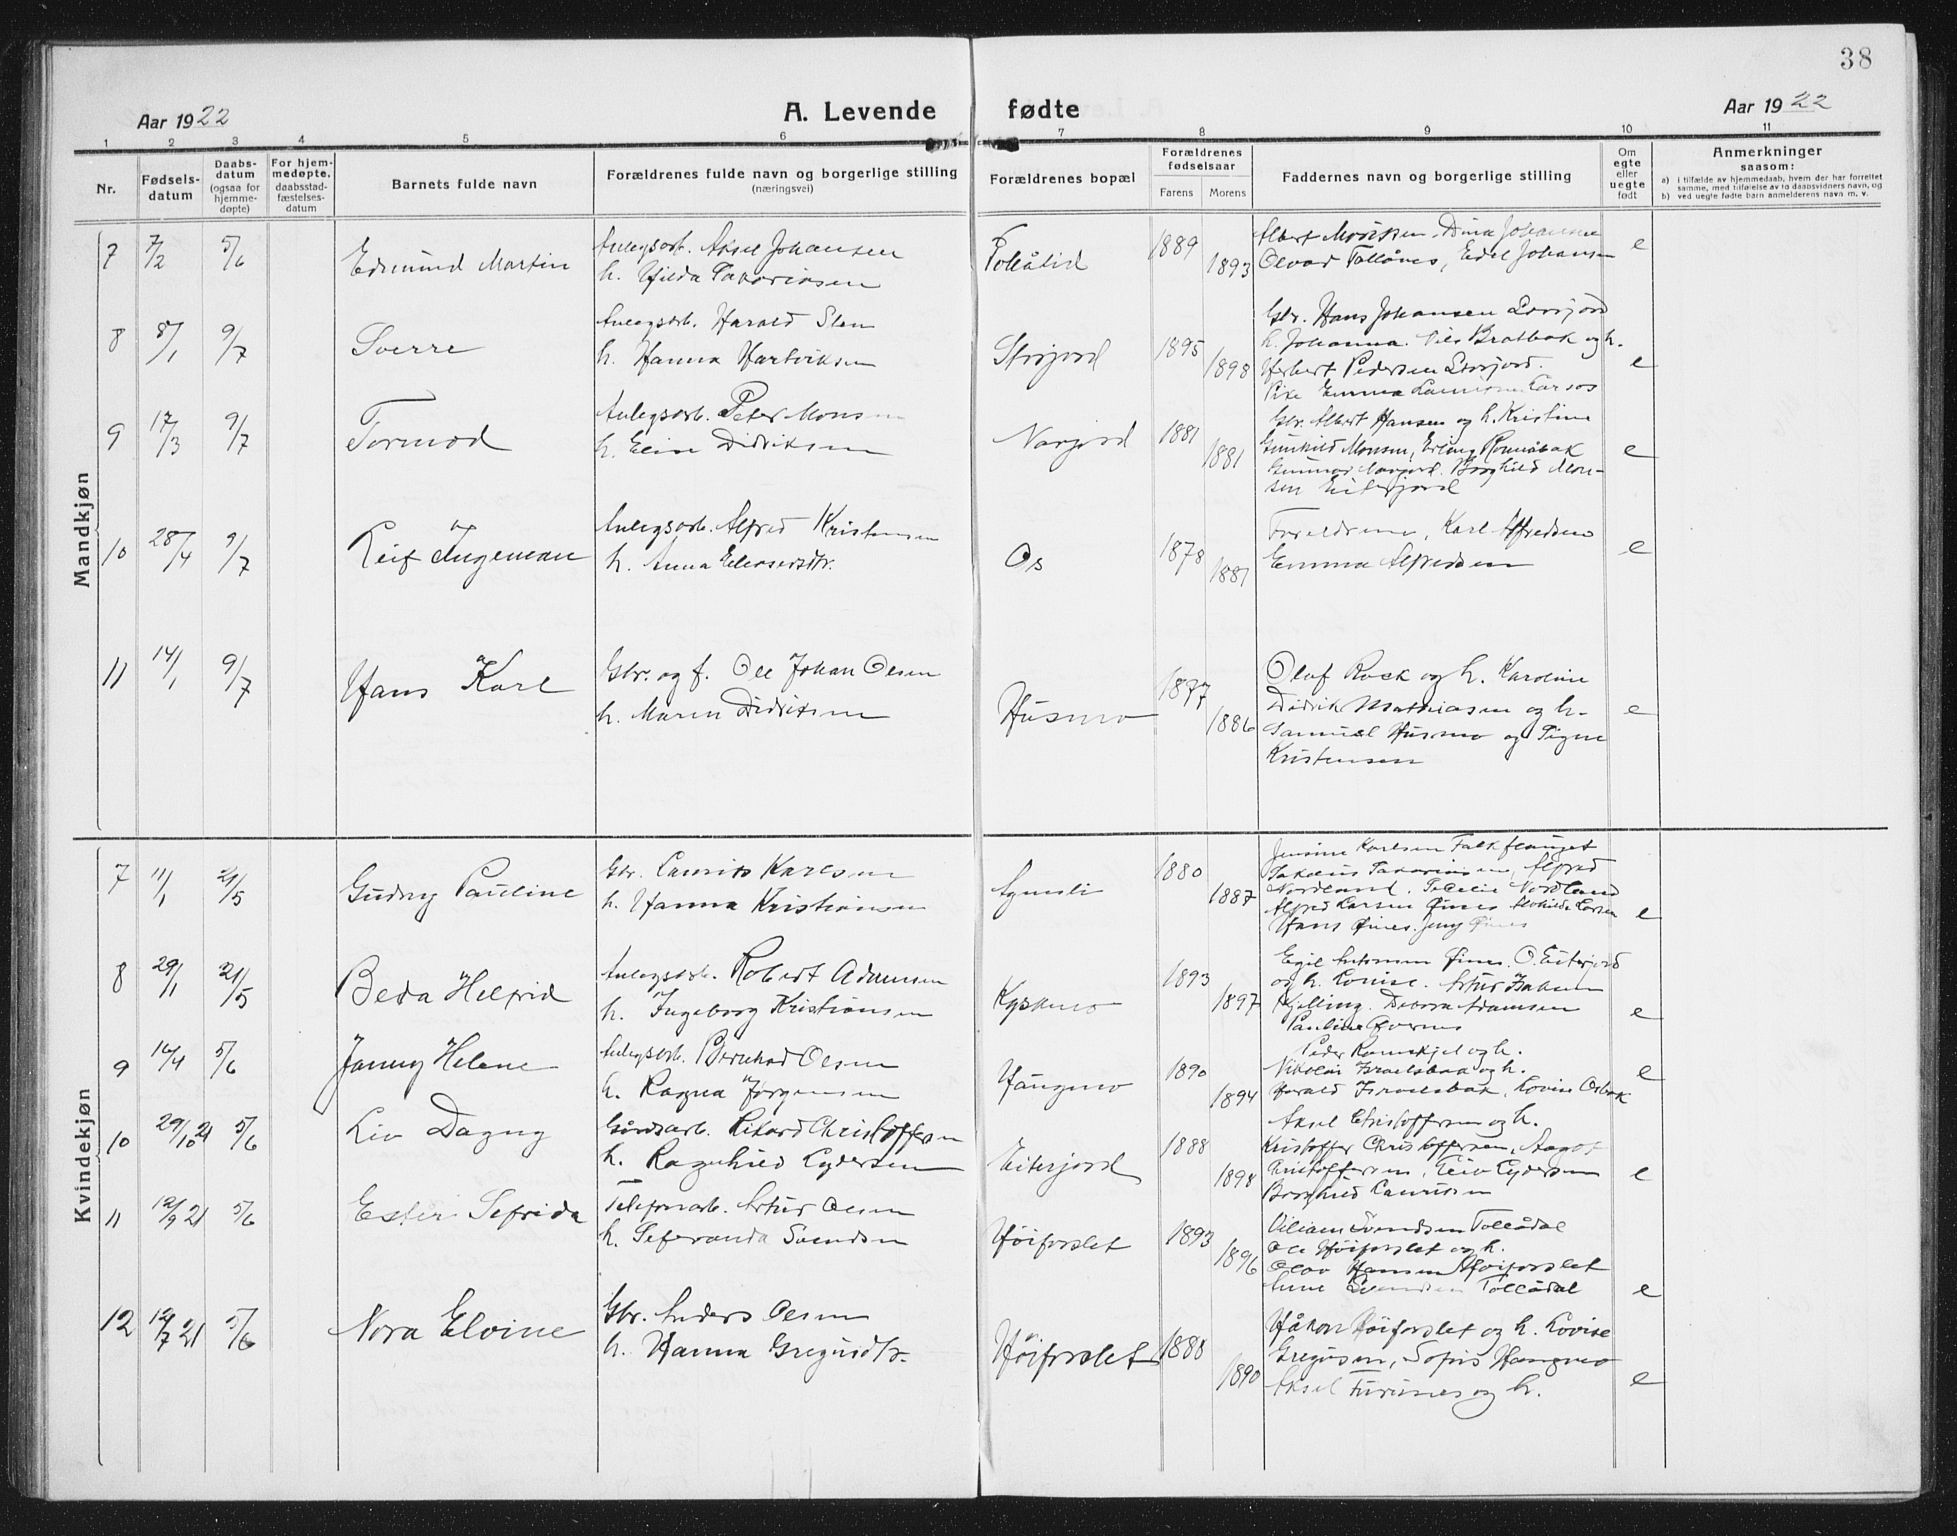 38
Aar 1922
A. Levende fødte
Aar 1922
1 2 3 4 5 6 7 8 9 10 11
Nr.
Fødsels-
datum
Daabs-
datum
(ogsaa for
hjemme-
døpte)
For hjem-
medøpte.
daabsstad-
fæstelses-
datum
Barnets fulde navn
Forældrenes fulde navn og borgerlige stilling
(næringsvei)
Forældrenes bopæl
Forældrenes
fødselsaar
Farens Morens
Faddernes navn og borgerlige stilling
Om
egte
eller
uegte
født
Anmerkninger
saasom:
a) i tilfælde av hjemmedaab, hvem der har forrettet
samme, med tilføielse av to daabsvidners navn, og
b) ved uegte fødte barn anmelderens navn m. v.
Mandkjøn
7 7/2 5/6 Edmund Martin
Anlegsarb. Aksel Johansen
h. Hilda
1889 1893
Albert Dina Johansen
Edel Johansen
e
8 8/1 9/7 Sverre
Anlegsarb. Harald Sten
h. Hanna Hartviksen
Storjord
1895 1898
Gbr. Hans Johansen Storjord
h. Johanna. Nils Bratbak og h.
Herbert Pedersen Storjord.
Pike Emma
e
9 17/3 9/7 Tormod
Anlegsarb. Peter Monsen
h. Elise Didriksen
Navjord
1881 1881
Gbr. Albert Hansen og h. Kristine
Gunhild Monsen, Erling
Gunnar Navjord. Borghild Mon-
sen Eiterjord
e
10 28/4 9/7 Leif Ingeman
Anlegsarb. Alfred Kristensen
h. Anna Eliasersdtr.
Os
1878 1881
Foreldrene, Karl Alfredsen
Emma Alfredsen
e
11 14/1 9/7 Hans Karl
Gbr. og f. Ole Johan Olsen
h. Maren Didriksen
Husmo
1877 1886
Olaf Rock og h. Karoline
Didrik Mathiasen og h.
Samuel Husmo og Signe
Kristensen
e
Kvindekjøn
7 11/1 21/5 Gudny Pauline
Gbr. Laurits Karlsen
h. Hanna Kristiansen
1880 1887
Jensine Karlsen Falkflauget
Alfred
Nordland. Nordland
Alfred Larsen Fines Larsen
Hans Fines. Jeny Fines
e
8 29/1 21/5 Beda Helfrid
Anlegsarb. Robert Adamsen
h. Ingeborg Kristiansen
1893 1897
Egil Antonsen Fines. O. Eiterjord
og h. Lovise. Artur
Kjelling. Adamsen
Pauline
e
9 16/4 5/6 Jenny Helene
Anlegsarb. Bernhard Olsen
h. Ragna Jørgensen
Haugmo
1890 1894
Peder Ramskjel og h.
Nikolai Israelsbak og h.
Harald Israelsbak, Lovise
e
10 29/10 21 5/6 Liv Dagny
Gårdsarb. Rikard Christoffersen
h. Ragnhild Lydersen
Eiterjord
1888 1898
Aksel Christoffersen og h.
Kristoffer Christoffersen, Aagot
Christoffersen, Leiv Lydersen
Borghild Lauritsen
e
11 12/9 21 5/6 Ester Sefrida
Telefonarb. Artur Olsen
h. Seferanda Svendsen
Høiforslet
1893 1896
Viliam Svendsen Tollådal
Ole Høiforslet og h.
Olav Hansen Høiforslet
Svendsen Tollådal
e
12 12/7 21 5/6 Nora Elvine
Gbr. Anders Olsen
h. Hanna Gregusdtr.
Høiforslet
1888 1890
Håkon Høiforslet og h. Lovise
Gregusen, Sofus Haugmo
Aksel Furunes og h.
e